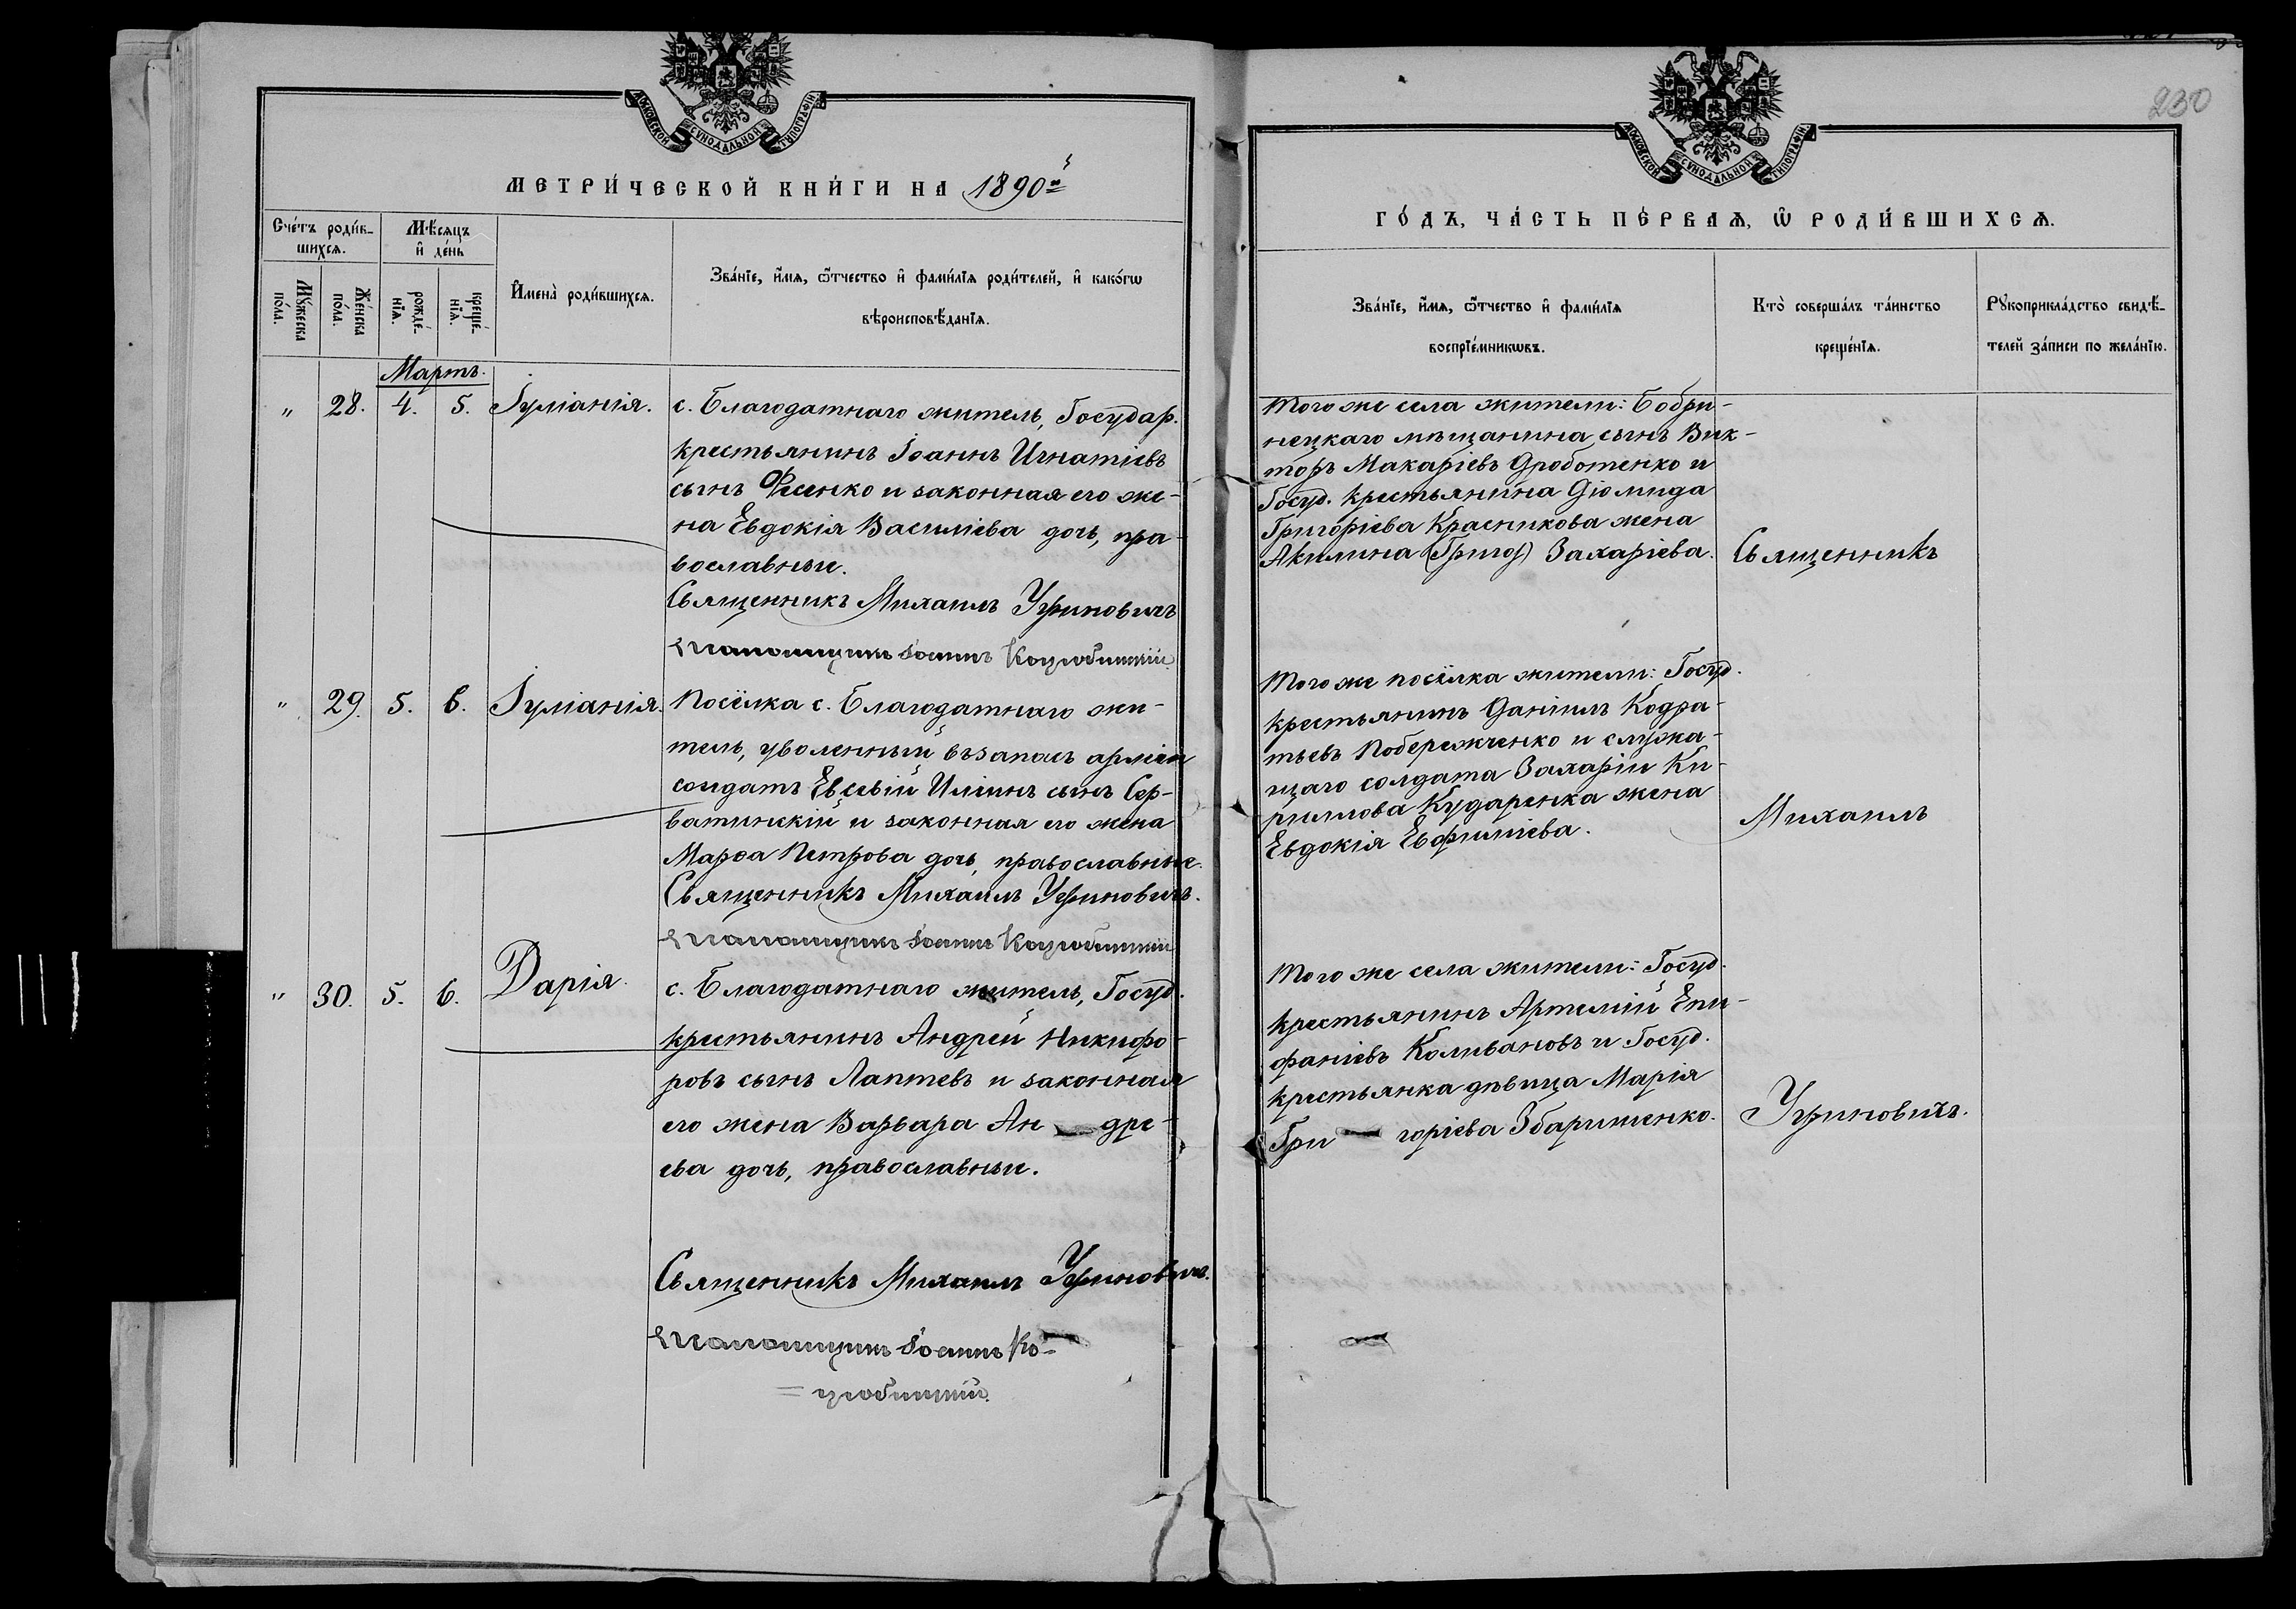 МОСКОВСКОЙ СѴНОДАЛЬНОЙ ТѴПОГРАФІИ
МЕТРИ́ЧЕСКОЙ КНИ́ГИ НА 1890й
Сче́тъ роди́в-
шихся.
Мѣ́сяцъ
и҆ де́нь
Мꙋ́жеска
по́ла.
Же́нска
по́ла.
рожде́-
нїѧ.
креще́-
нїѧ.
И҆мена̀ роди́вшихся.
Зва́нїе, и҆́мя, ѻ҆́тчество и҆ фами́лїя роди́телей, и҆ како́гѡ
вѣроисповѣ́данїя.
Мартъ.
" 28. 4. 5. Іуліанія.
с. Благодатнаго житель, Государ.
крестьянинъ Іоаннъ Игнатіевъ
сынъ Фесенко и законная его же-
на Евдокія Василіева дочь, пра-
вославные.
Священникъ Михаилъ Угриновичъ
Псаломщикъ Іоаннъ Коцюбинскій
" 29. 5. 6. Іуліанія.
Посёлка с. Благодатнаго жи-
тель, уволенный въ запасъ арміи
солдатъ Евсевій Иліинъ сынъ Сер-
ватинскій и законная его жена
Марѳа Петрова дочь, православные.
Священникъ Михаилъ Угриновичъ.
Псаломщикъ Іоаннъ Коцюбинскій
" 30. 5. 6. Дарія.
с. Благодатнаго житель, Госуд.
крестьянинъ Андрей Никифо-
ровъ сынъ Лаптевъ и законная
его жена Варвара Ан дре-
ева дочь, православные.
Священникъ Михаилъ Угриновичъ.
Псаломщикъ Іоаннъ Ко-
= цюбинскій.
230
МОСКОВСКОЙ СѴНОДАЛЬНОЙ ТѴПОГРАФІИ
ГО́ДЪ, ЧА́СТЬ ПЕ́РВАЯ, Ѡ҆ РОДИ́ВШИХСЯ.
Зва́нїе, и҆́мя, ѻ҆́тчество и҆ фами́лїя
воспрїе́мникѡвъ.
Кто̀ соверша́лъ та́инство
креще́нїя.
Рꙋкоприкла́дство свидѣ́-
телей за́писи по жела́нїю.
Того же села жители: Бобри-
нецкаго мѣщанина сынъ Вик-
торъ Макаріевъ Дроботенко и
Госуд. крестьянина Діомида
Григоріева Красникова жена
Акилина (Григор) Захаріева.
Священникъ
Того же посёлка жители: Госуд.
крестьянинъ Даніилъ Кодра-
тьевъ Побережченко и служа-
щаго солдата Захаріи Ки-
риллова Кударенка жена
Евдокія Евфиміева.
Михаилъ
Того же села жители: Госуд.
крестьянинъ Артемій Епи-
фаніевъ Коливановъ и Госуд.
крестьянка дѣвица Марія
Гри горіева Збаришенко.
Угриновичъ.